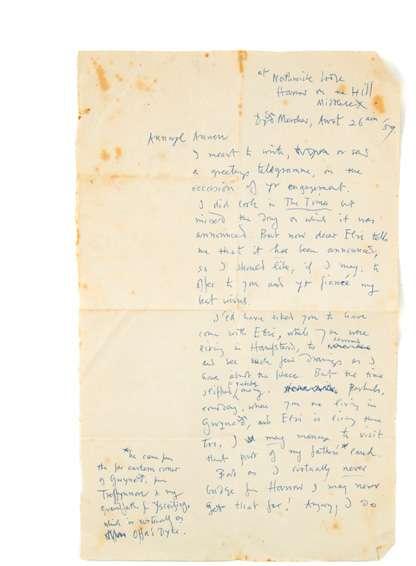 at Northwick Lodge
Harrow on the Hill
Middlesex
Dydd Mercher, Awst 26 '59
Annwyl
I meant to write, or send
a greetings telegramme, on the
occasion of yr engagement.
I did look in The Times but
missed the day on which it was
announced. But now dear Elsi tells
me that it has been announced,
so I should like, if I may, to
offer to you and yr fiancé my
best wishes.
I'd have liked you to have
come with Elsi, while you were
living in Hampstead, to
and see such few drawings as I
have about the place. But the time
slipped away. Perhaps,
someday, when you are living in
Gwynedd, and Elsi is living there
too, I may manage to visit
that part of my father's* land.
But as I virtually never
budge from Harrow I may never
get that far! Anyway, I do
*he came from
the far eastern corner
of Gwynedd, from
Treffynnon & my
grandfather from Ysceifiog,
which is virtually on
Offa's Dyke.